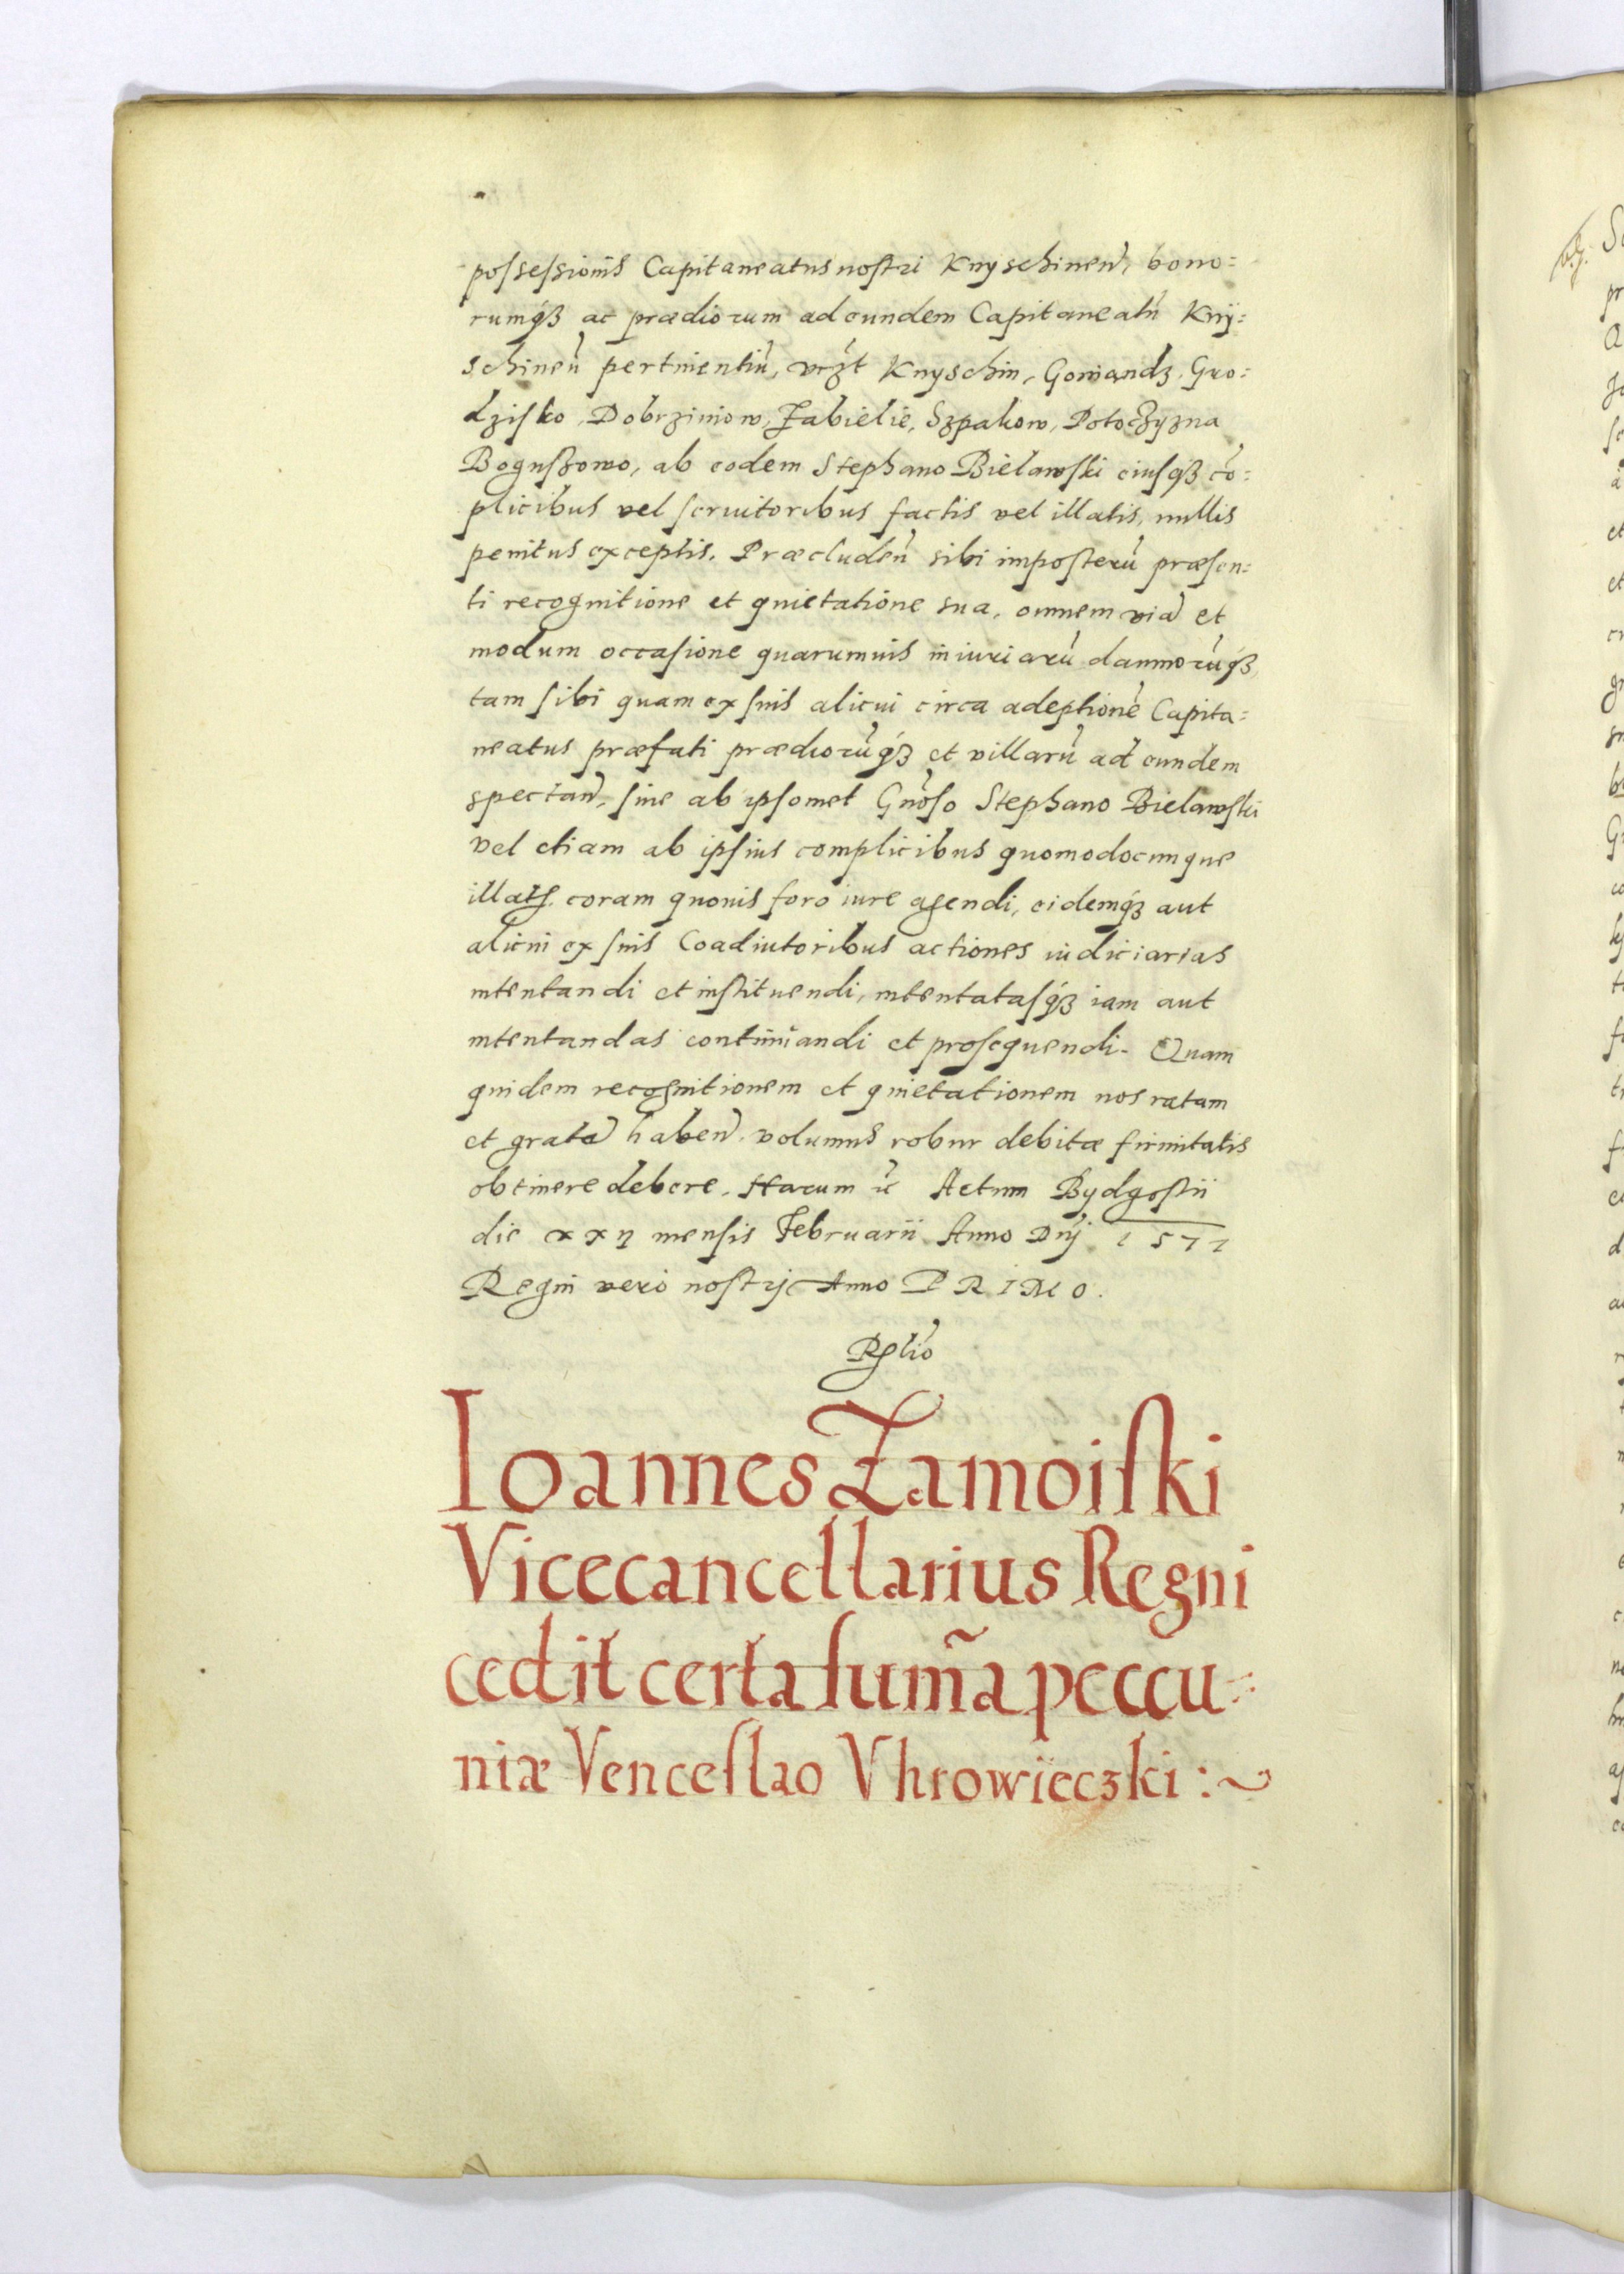 possessionis Capitaneatus nostri Knyschineñ, bono=
rumq́ȝ ac prædiorum ad eundem Capitaneatũ Kny=
schineñ pertinentiũ, vrzt Knyschin, Goniandz, Gro=
dzisko, Dobrziniow, Zabielie, Szpakow, Potoczyzna
Boguszowo, ab eodem Stephano Bielawski eiusq́ȝ cõ=
plicibus vel seruitoribus factis vel illatis, nullis
penitus exceptis. Præcludeñ sibi imposterũ præsen=
ti recognitione et quietatione sua, omnem viã et
modum occasione quarumuis iniuriarũ damnorũq́ȝ,
tam sibi quam ex suis alicui circa adeptionẽ Capita=
neatus præfati prædiorũq́ȝ et villarũ ad eundem
spectañ, siue ab ipsomet Gñoso Stephano Bielawski
vel etiam ab ipsius complicibus quomodocunque
illatis. coram quouis foro iure agendi, eidemq́ȝ aut
alicui ex suis Coadiutoribus actiones iudiciarias
intentandi et instituendi, intentatasq́ȝ iam aut
intentandas continuandi et prosequendi. Quam
quidem recognitionem et quietationem nos ratam
et gratã habeñ. volumus robur debitæ firmitatis
obtinere debere. Harum ĩc Actum Bydgostii
die xxij mensis Februarii Anno Dnj 1577
Regni vero nostrj Anno PRIMO.
Rglio
Ioannes Zamoiski
Vicecancellarius Regni
cedit certa sum̃a peccu=
niæ Venceslao Vhrowieczki :~